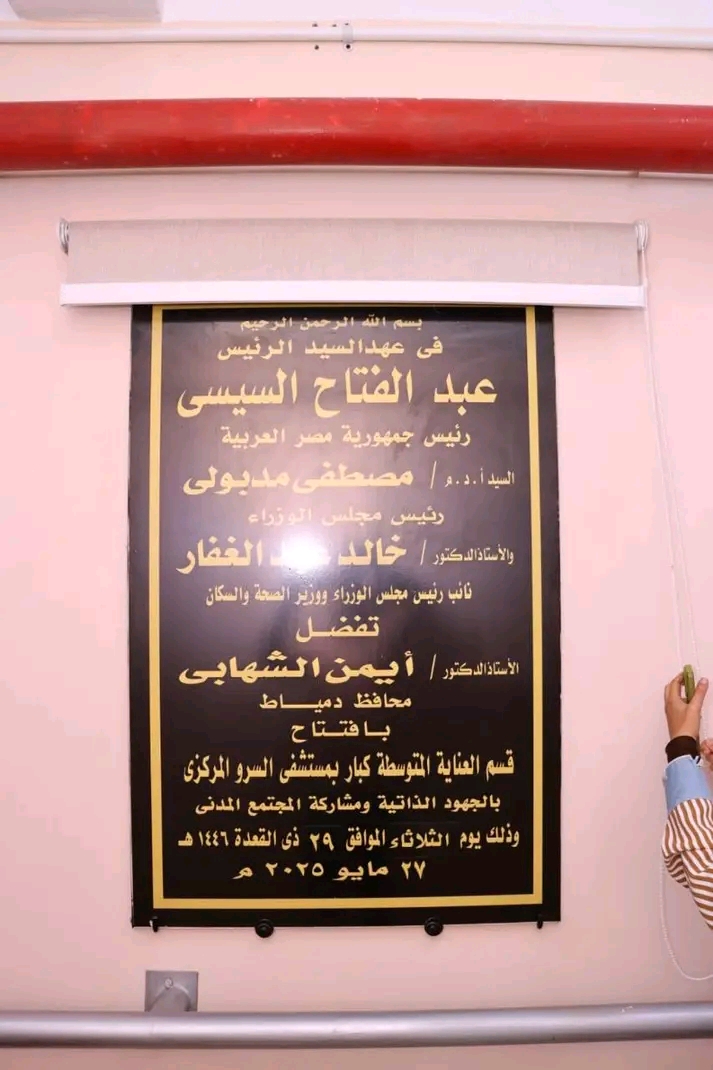 بسم الله الرحمن الرحيم
فى عهد السيد الرئيس
عبد الفتاح السيسى
رئيس جمهورية مصر العربية
السيد أ . د . م / مصطفى مدبولى
رئيس مجلس الوزراء
والأستاذ الدكتور / خالد عبد الغفار
نائب رئيس مجلس الوزراء ووزير الصحة والسكان
تفضل
الأستاذ الدكتور / أيمن الشهابى
محافظ دمياط
بافتتاح
قسم العناية المتوسطة كبار بمستشفى السرو المركزى
بالجهود الذاتية ومشاركة المجتمع المدنى
وذلك يوم الثلاثاء الموافق ٢٩ ذى القعدة ١٤٤٦ هـ
٢٧ مايو ٢٠٢٥ م